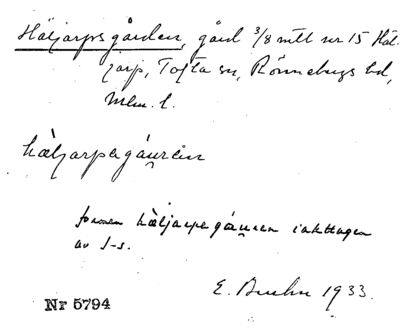 Häljarpsgården, gård 3/8 mtl nr 15 Häl-
jarp, Tofta sn, Rönnebergs hd,
Mlm. l.
hàljarpegáu̯rėn
formen hàljarpegáu̯ren iakttagen
av S-s.
E. Bruhn 1933.
Nr 5794